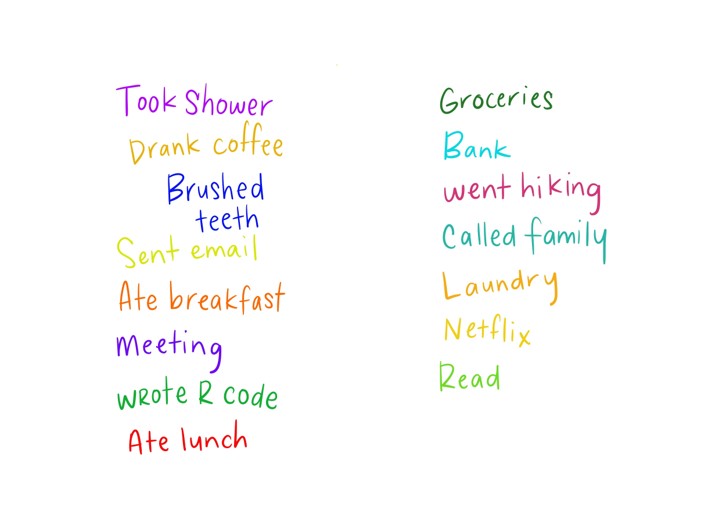 Took Shower
Drank coffee
Brushed
teeth
Sent email
Ate breakfast
Meeting
wrote R code
Ate lunch
Groceries
Bank
went hiking
Called family
Laundry
Netflix
Read